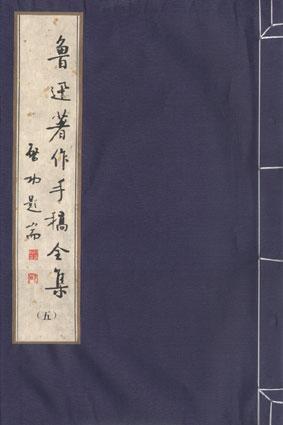 鲁迅著作手稿全集
启功题耑
（五）